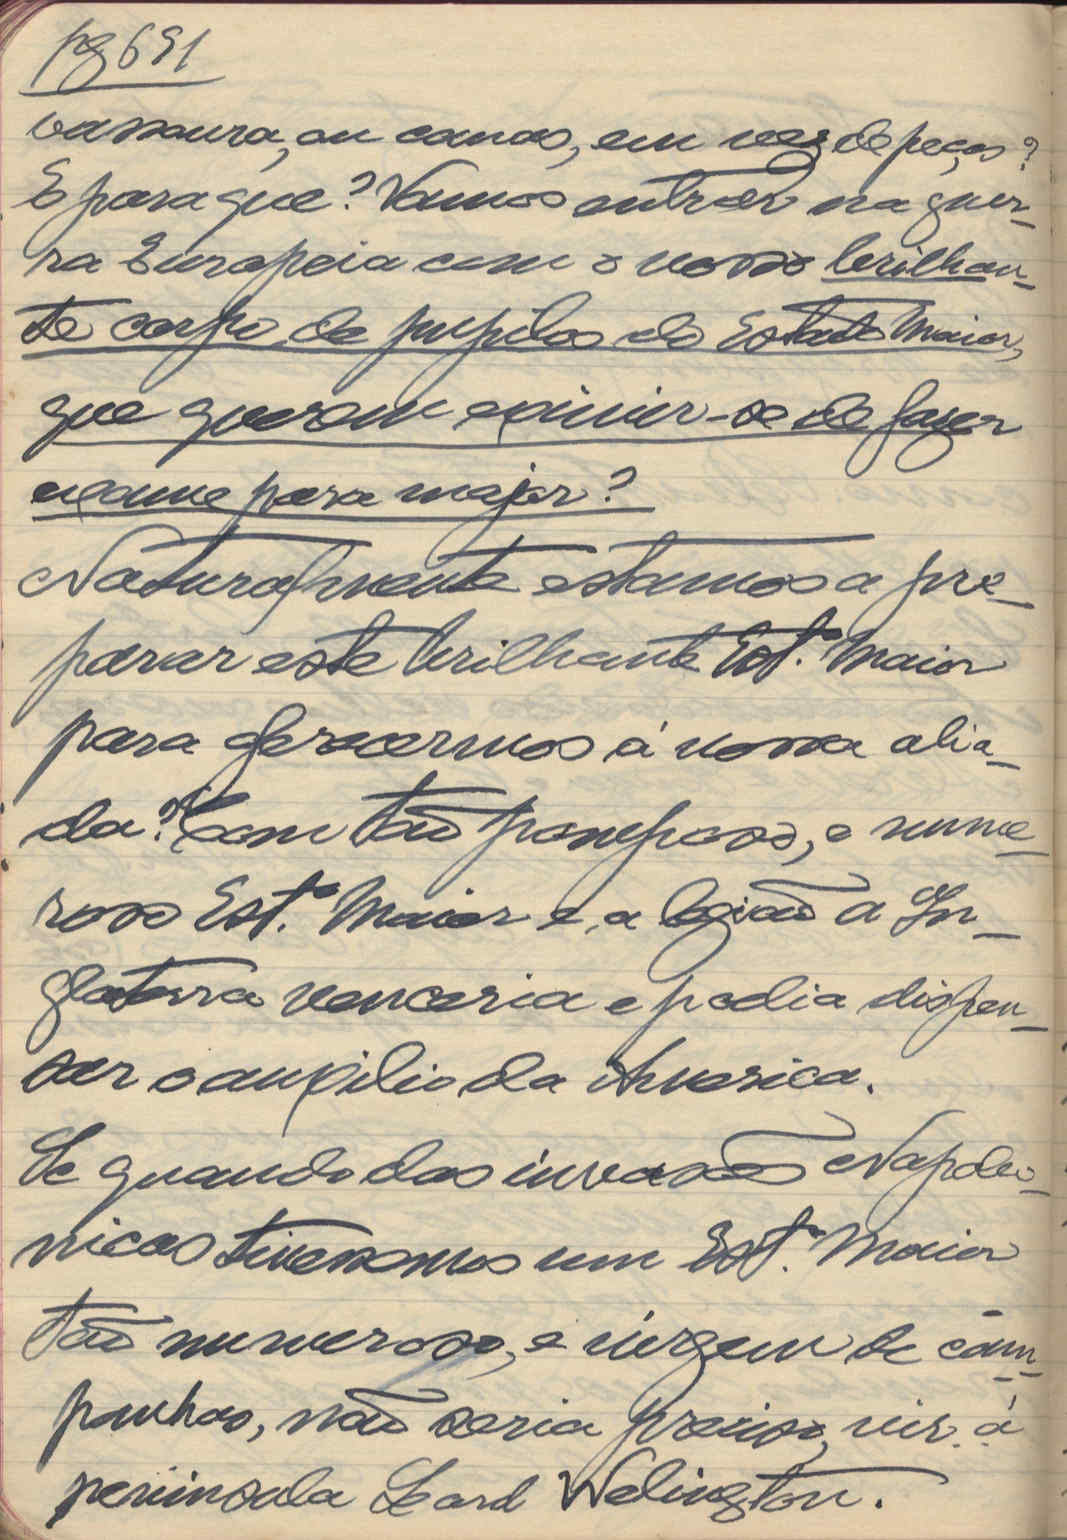 pg 691
vassoura, ou canas, em vez de peças?
E para que? Vamos entrar na guer-
ra Europeia com o nosso brilhan-
te corpo de pupilos do Estado Maior,
que querem eximir-se de fazer
exame para major?
Naturalmente estamos a pre-
parar este brilhante Est.º Maior
para of'recermos á nossa alia-
da? Com tão pomposo, e nume-
roso Est.º Maior e, a legião a In-
glaterra venceria e podia dispen-
sar o auxilio da America.
Se quando das invasões Napoleo-
nicas tivessemos um Est.º Maior
tão numeroso, e virgem de cam-
panhas, não seria preciso, vir á
peninsula Leard Welington.